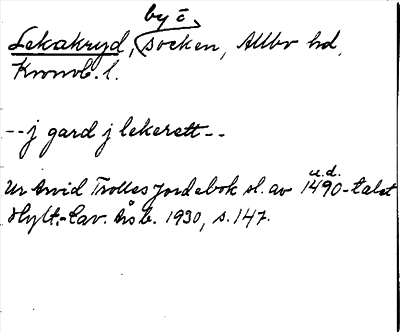 by o.
Lekakryd, socken, Allbo hd,
Kronob. l.
-- j gard j lekerett --
u. d.
Ur Arvid Trolles jordebok sl. av 1490-talet
Hylt.-Cav. Årsb. 1930, s. 147.